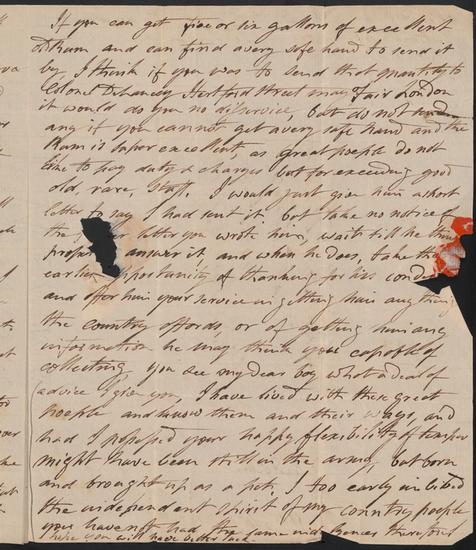 If you can get five or six gallons of excellent
Rum and can find a very safe hand to send it
by, I think if you was to send that quantity to
Colonel Delancey Hertford Street may Fair London
it would do you no disservice, but do not send
any if you cannot get a very safe hand and the
Rum is super excellent, as great people do not
like to pay duty & charges but for exceeding good
old, rare, Stuff. I would just give him a short
letter to say I had sent it, but take no notice of
the letter you wrote him, wait till he thinks
proper answer it, and when he does, take the
earliest opportunity of thanking for his
and offer him your service in getting him any thing
the country affords, or of getting him any
information he may think you capable of
collecting, you see my dear boy what a deal of
advice I give you, I have lived with these great
people and know them and their ways, and
had I possessed your happy flexibility of temper
might have been still in the army, but born
and brought up as a pet, I too early imbibed
the independent spirit of my country people
you have not had the same therefore
I hope you will have better luck.